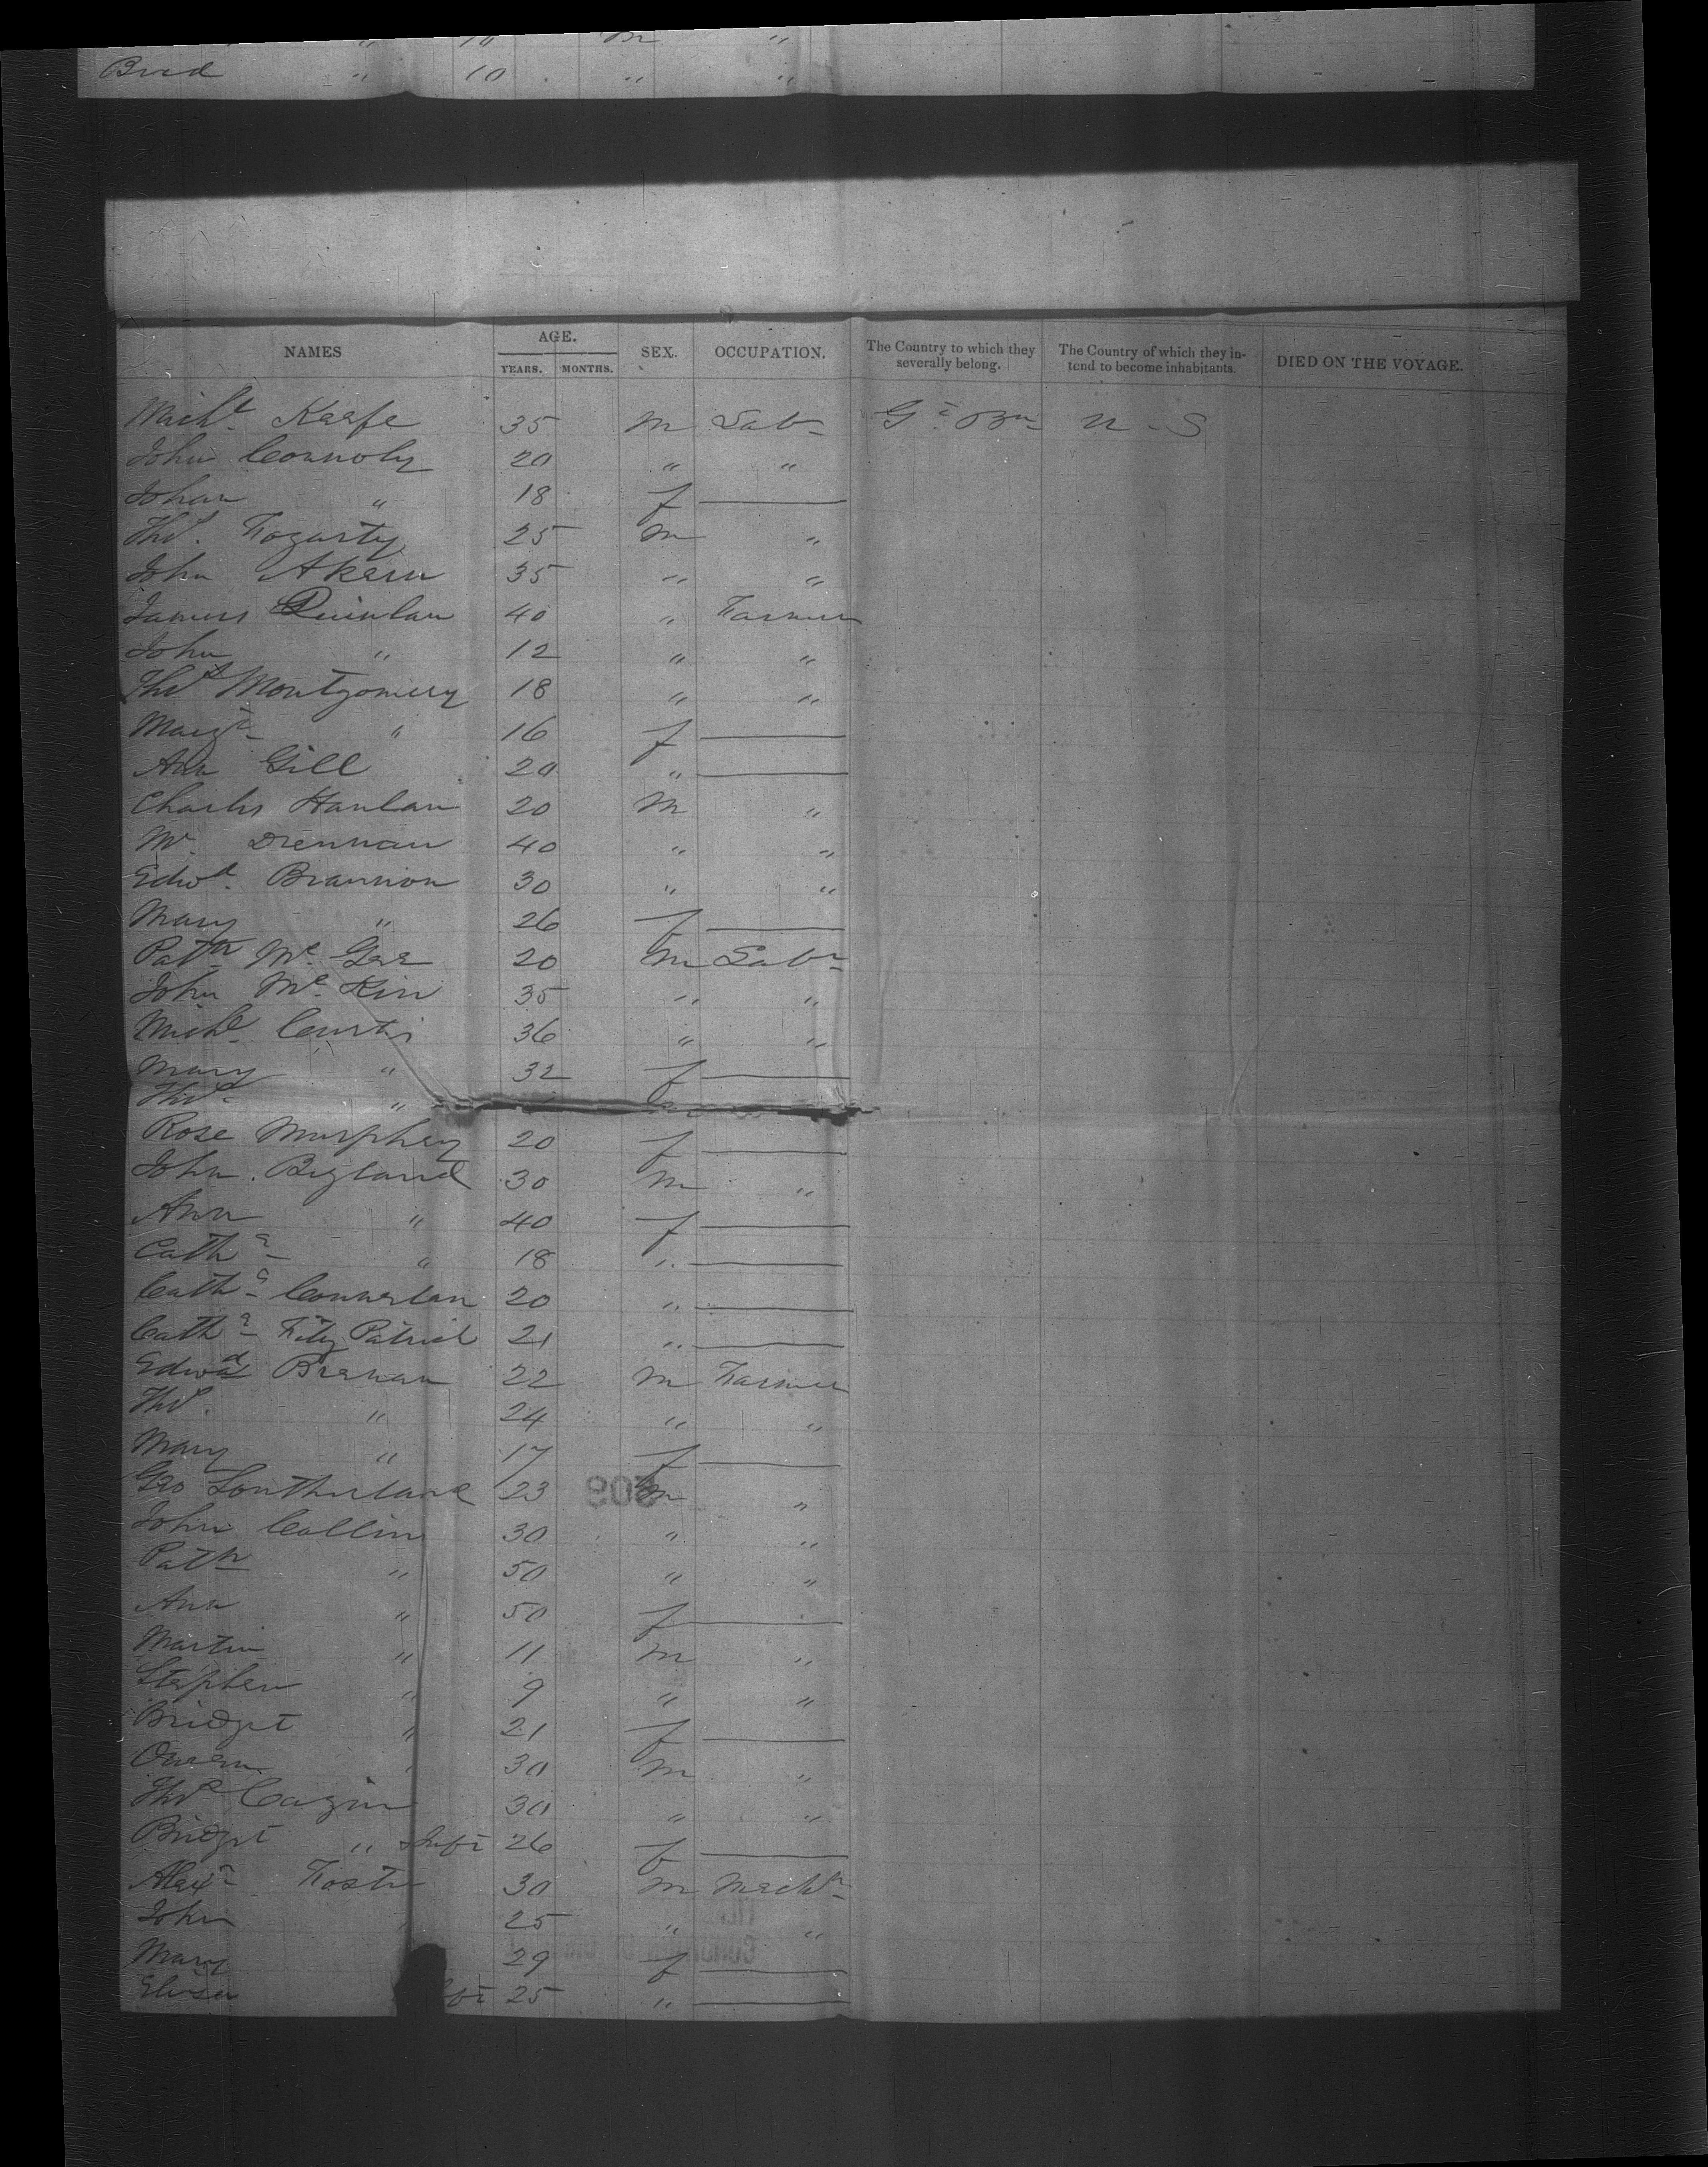 " 10 m "
Brid " 10 " "
NAMES AGE. YEARS. MONTHS. SEX. OCCUPATION. The Country to which they severally belong. The Country of which they intend to become inhabitants. DIED ON THE VOYAGE.
Michl Keefe 35 m Labr Gt Bn U.S
John Connoly 20 " "
Johan " 18 f
Thos. Fogarty 25 m "
John Akern 35 " "
James Quinlan 40 " Farmer
John " 12 " "
Thos Montgomery 18 " "
Margt " 16 f
Ann Gill 20 "
Charls Hanlan 20 m "
Drennan 40 " "
Edwd. Brannion 30 " "
Mary " 26 f
Patk Mc Gee 20 m Labr
John Mc Kin 35 " "
Michl Curtis 36 " "
Mary " 32 f
Thos "
Rose Murphey 20 f
John Bigland 30 m "
Ann " 40 f
Cathe " 18 "
Cathe 20 "
Cathe Fitz Patrick 21 "
Edwad Brenan 22 m Farmer
Thos. " 24 " "
Mary " 17 f
Geo Southerland 23 m "
John Collins 30 " "
Patk " 50 " "
Ann " 50 f
Martin " 11 m "
Stephen " 9 " "
Bridget " 21 f
Owen " 30 m "
Thos 30 " "
Bridget " Inft 26 f
Alexr Foster 30 m Mechc
John 25 " "
Mary 29 f
Eliza 25 "